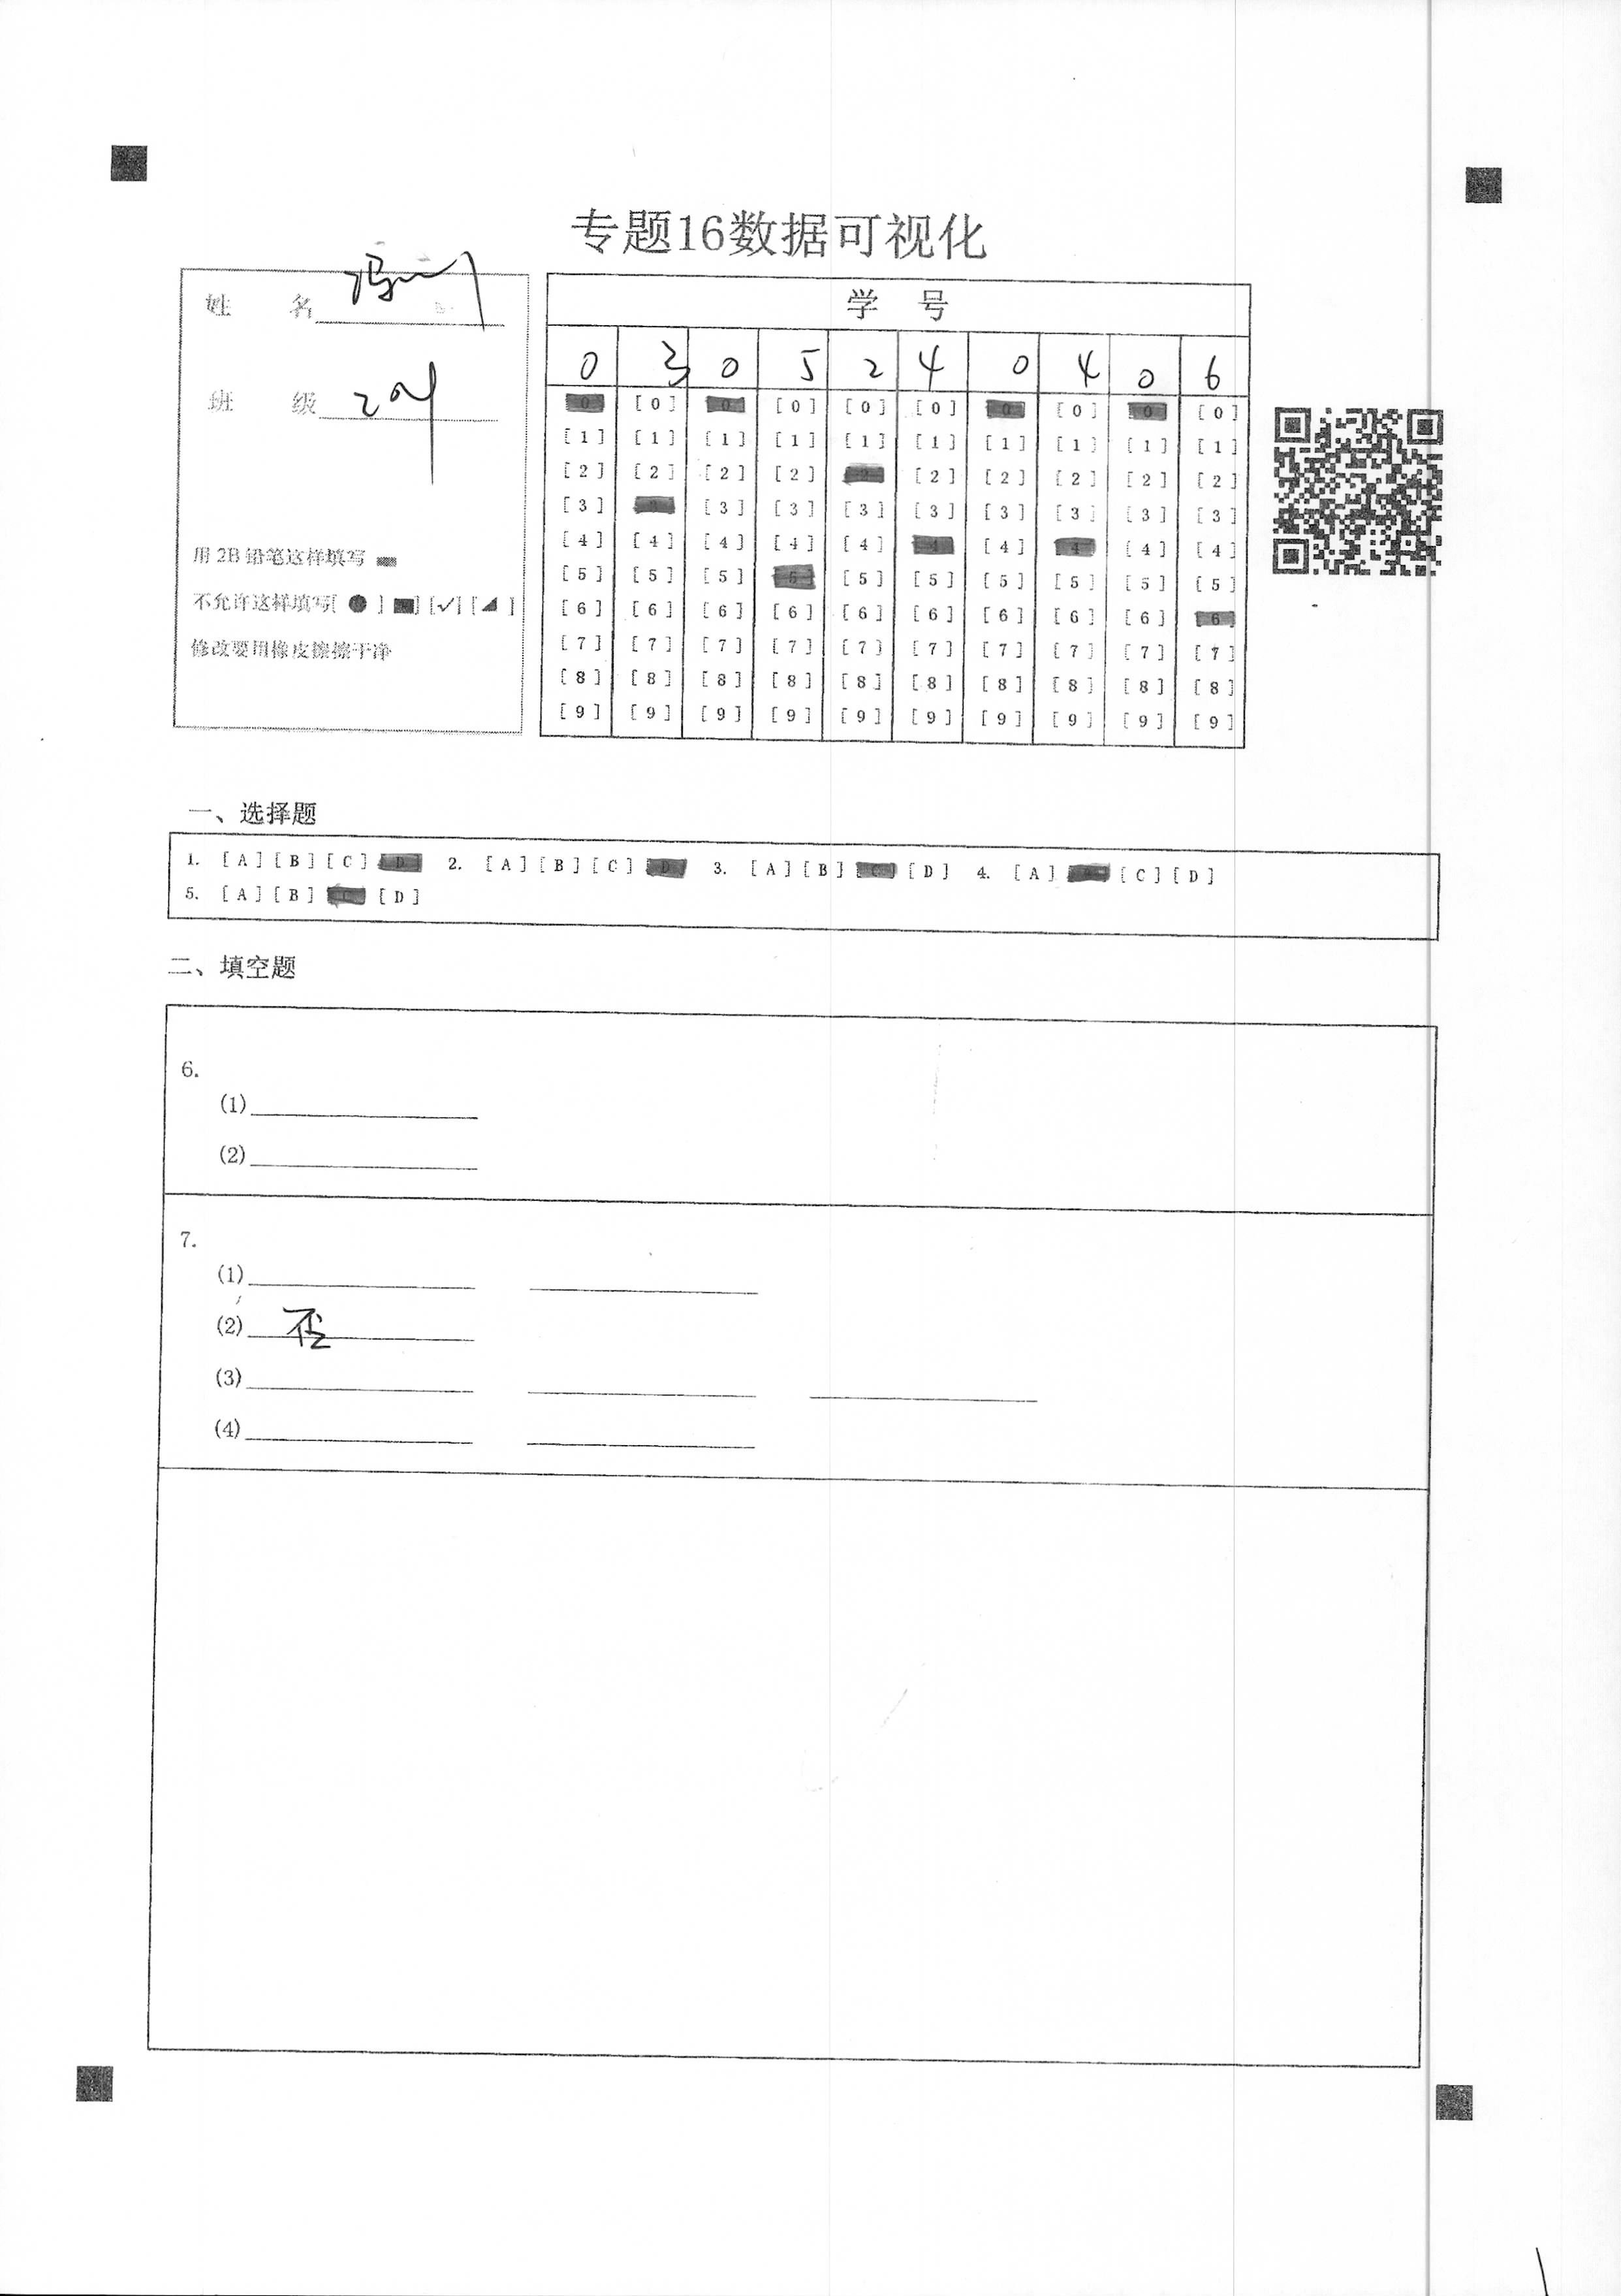 专题16数据可视化
姓 名
班 级 204
用 2B 铅笔这样填写
不允许这样填写[ ● ] ■] [✓] [◢ ]
修改要用橡皮擦擦干净
学 号
0 3 0 5 2 4 0 4 0 6
[0] [0] [0] [0] [0] [0] [0] [0] [0] [0]
[1] [1] [1] [1] [1] [1] [1] [1] [1] [1]
[2] [2] [2] [2] [2] [2] [2] [2] [2]
[3] [3] [3] [3] [3] [3] [3] [3] [3]
[4] [4] [4] [4] [4] [4] [4] [4] [4] [4]
[5] [5] [5] [5] [5] [5] [5] [5] [5] [5]
[6] [6] [6] [6] [6] [6] [6] [6] [6] [6]
[7] [7] [7] [7] [7] [7] [7] [7] [7] [7]
[8] [8] [8] [8] [8] [8] [8] [8] [8] [8]
[9] [9] [9] [9] [9] [9] [9] [9] [9] [9]
一、选择题
1. [A] [B] [C] [D] 2. [A] [B] [C] [D] 3. [A] [B] [C] [D] 4. [A] [C] [D]
5. [A] [B] [C] [D]
二、填空题
6.
(1)
(2)
7.
(1)
(2) 否
(3)
(4)